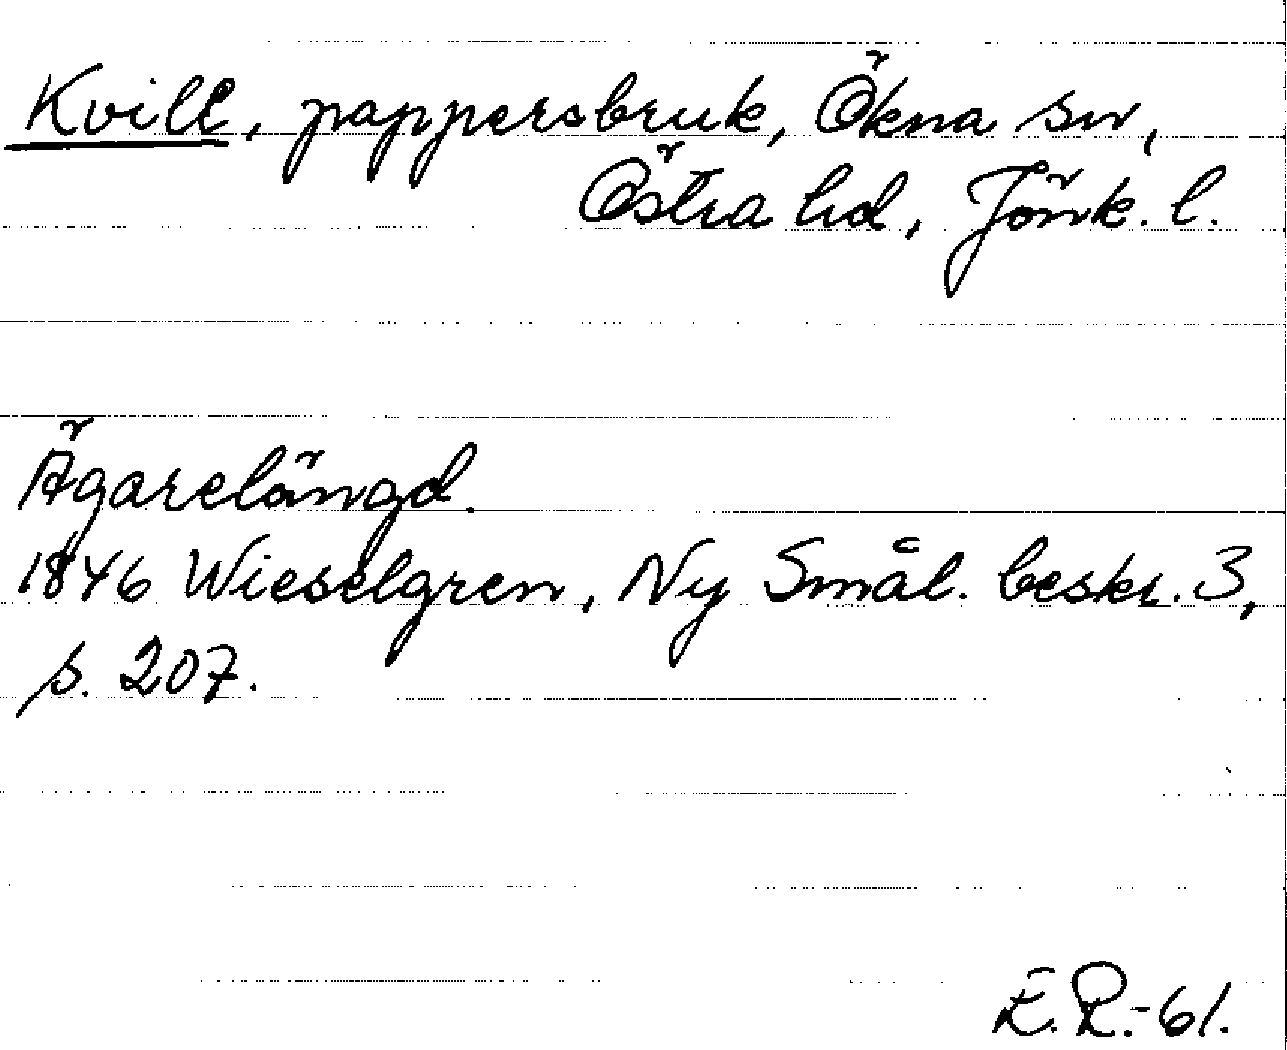 Kvill, pappersbruk, Ökna sn,
Östra hd, Jönk. l.
Ägarelängd.
1846 Wieselgren, Ny Smål. beskr. 3,
s. 207.
E.R.-61.